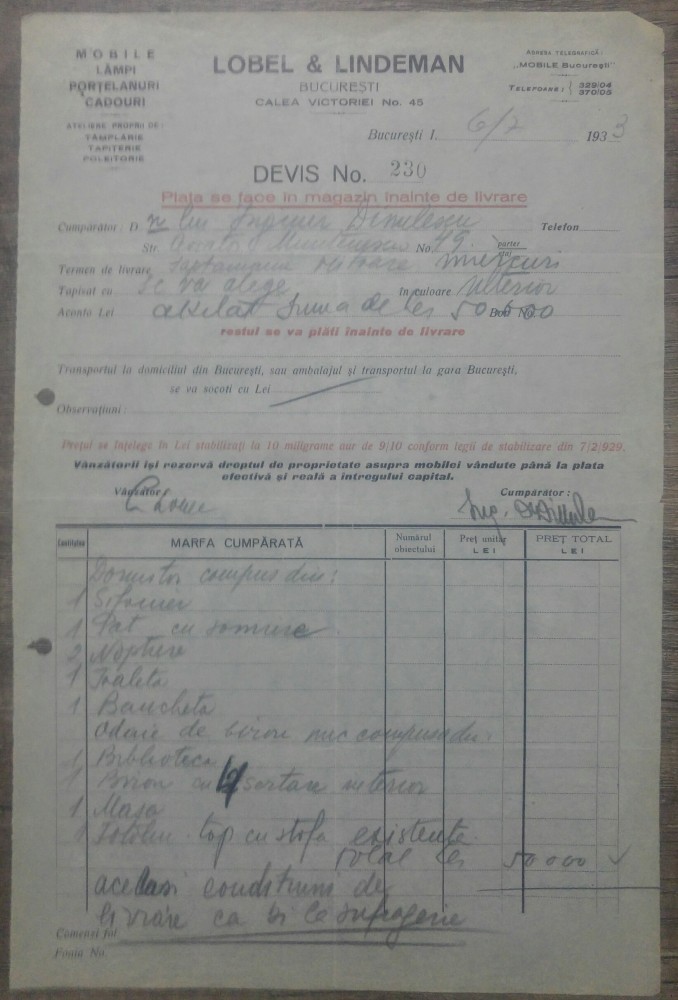 MOBILE
LĂMPI
PORȚELANURI
CADOURI
ATELIERE PROPRII DE:
TÂMPLĂRIE
TAPIȚERIE
POLEITORIE
LOBEL & LINDEMAN
BUCUREȘTI
CALEA VICTORIEI No. 45
ADRESA TELEGRAFICĂ:
„MOBILE București”
TELEFOANE: { 329/04
370/05
București I. 6/2 1933
DEVIS No. 230
Plata se face în magazin înainte de livrare
Cumpărător: D. Inginer Dimulescu Telefon
Str. No. 19. parter
Termen de livrare miercuri
Tapisat cu se va alege In culoare ulterior
Aconto Lei achitat suma de lei 50000 Bon No.
restul se va plăti înainte de livrare
Transportul la domiciliul din București, sau ambalajul și transportul la gara București,
se va socoti cu Lei
Observațiuni
Prețul se înțelege în Lei stabilizați la 10 miligrame aur de 9/10 conform legii de stabilizare din 7/2/929.
Vânzătorii își rezervă dreptul de proprietate asupra mobilei vândute până la plata
efectivă și reală a întregului capital.
Vânzător Cumpărător:
Ing.
Cantitatea MARFA CUMPĂRATĂ Numărul obiectului Preț unitar LEI PREȚ TOTAL LEI
Dormitor compus din:
1 Sifonier
1 Pat cu somiere
2 Noptiere
1 Toaleta
1 Bancheta
Odaie de birou compusa din:
1 Biblioteca
1 Birou cu sertare interior
1 Masa
1 Fotoliu tap cu stofa existente
total lei 50000
aceleasi conditiuni de
livrare ca si la sufragerie
Comenzi fol.
Fonin No.